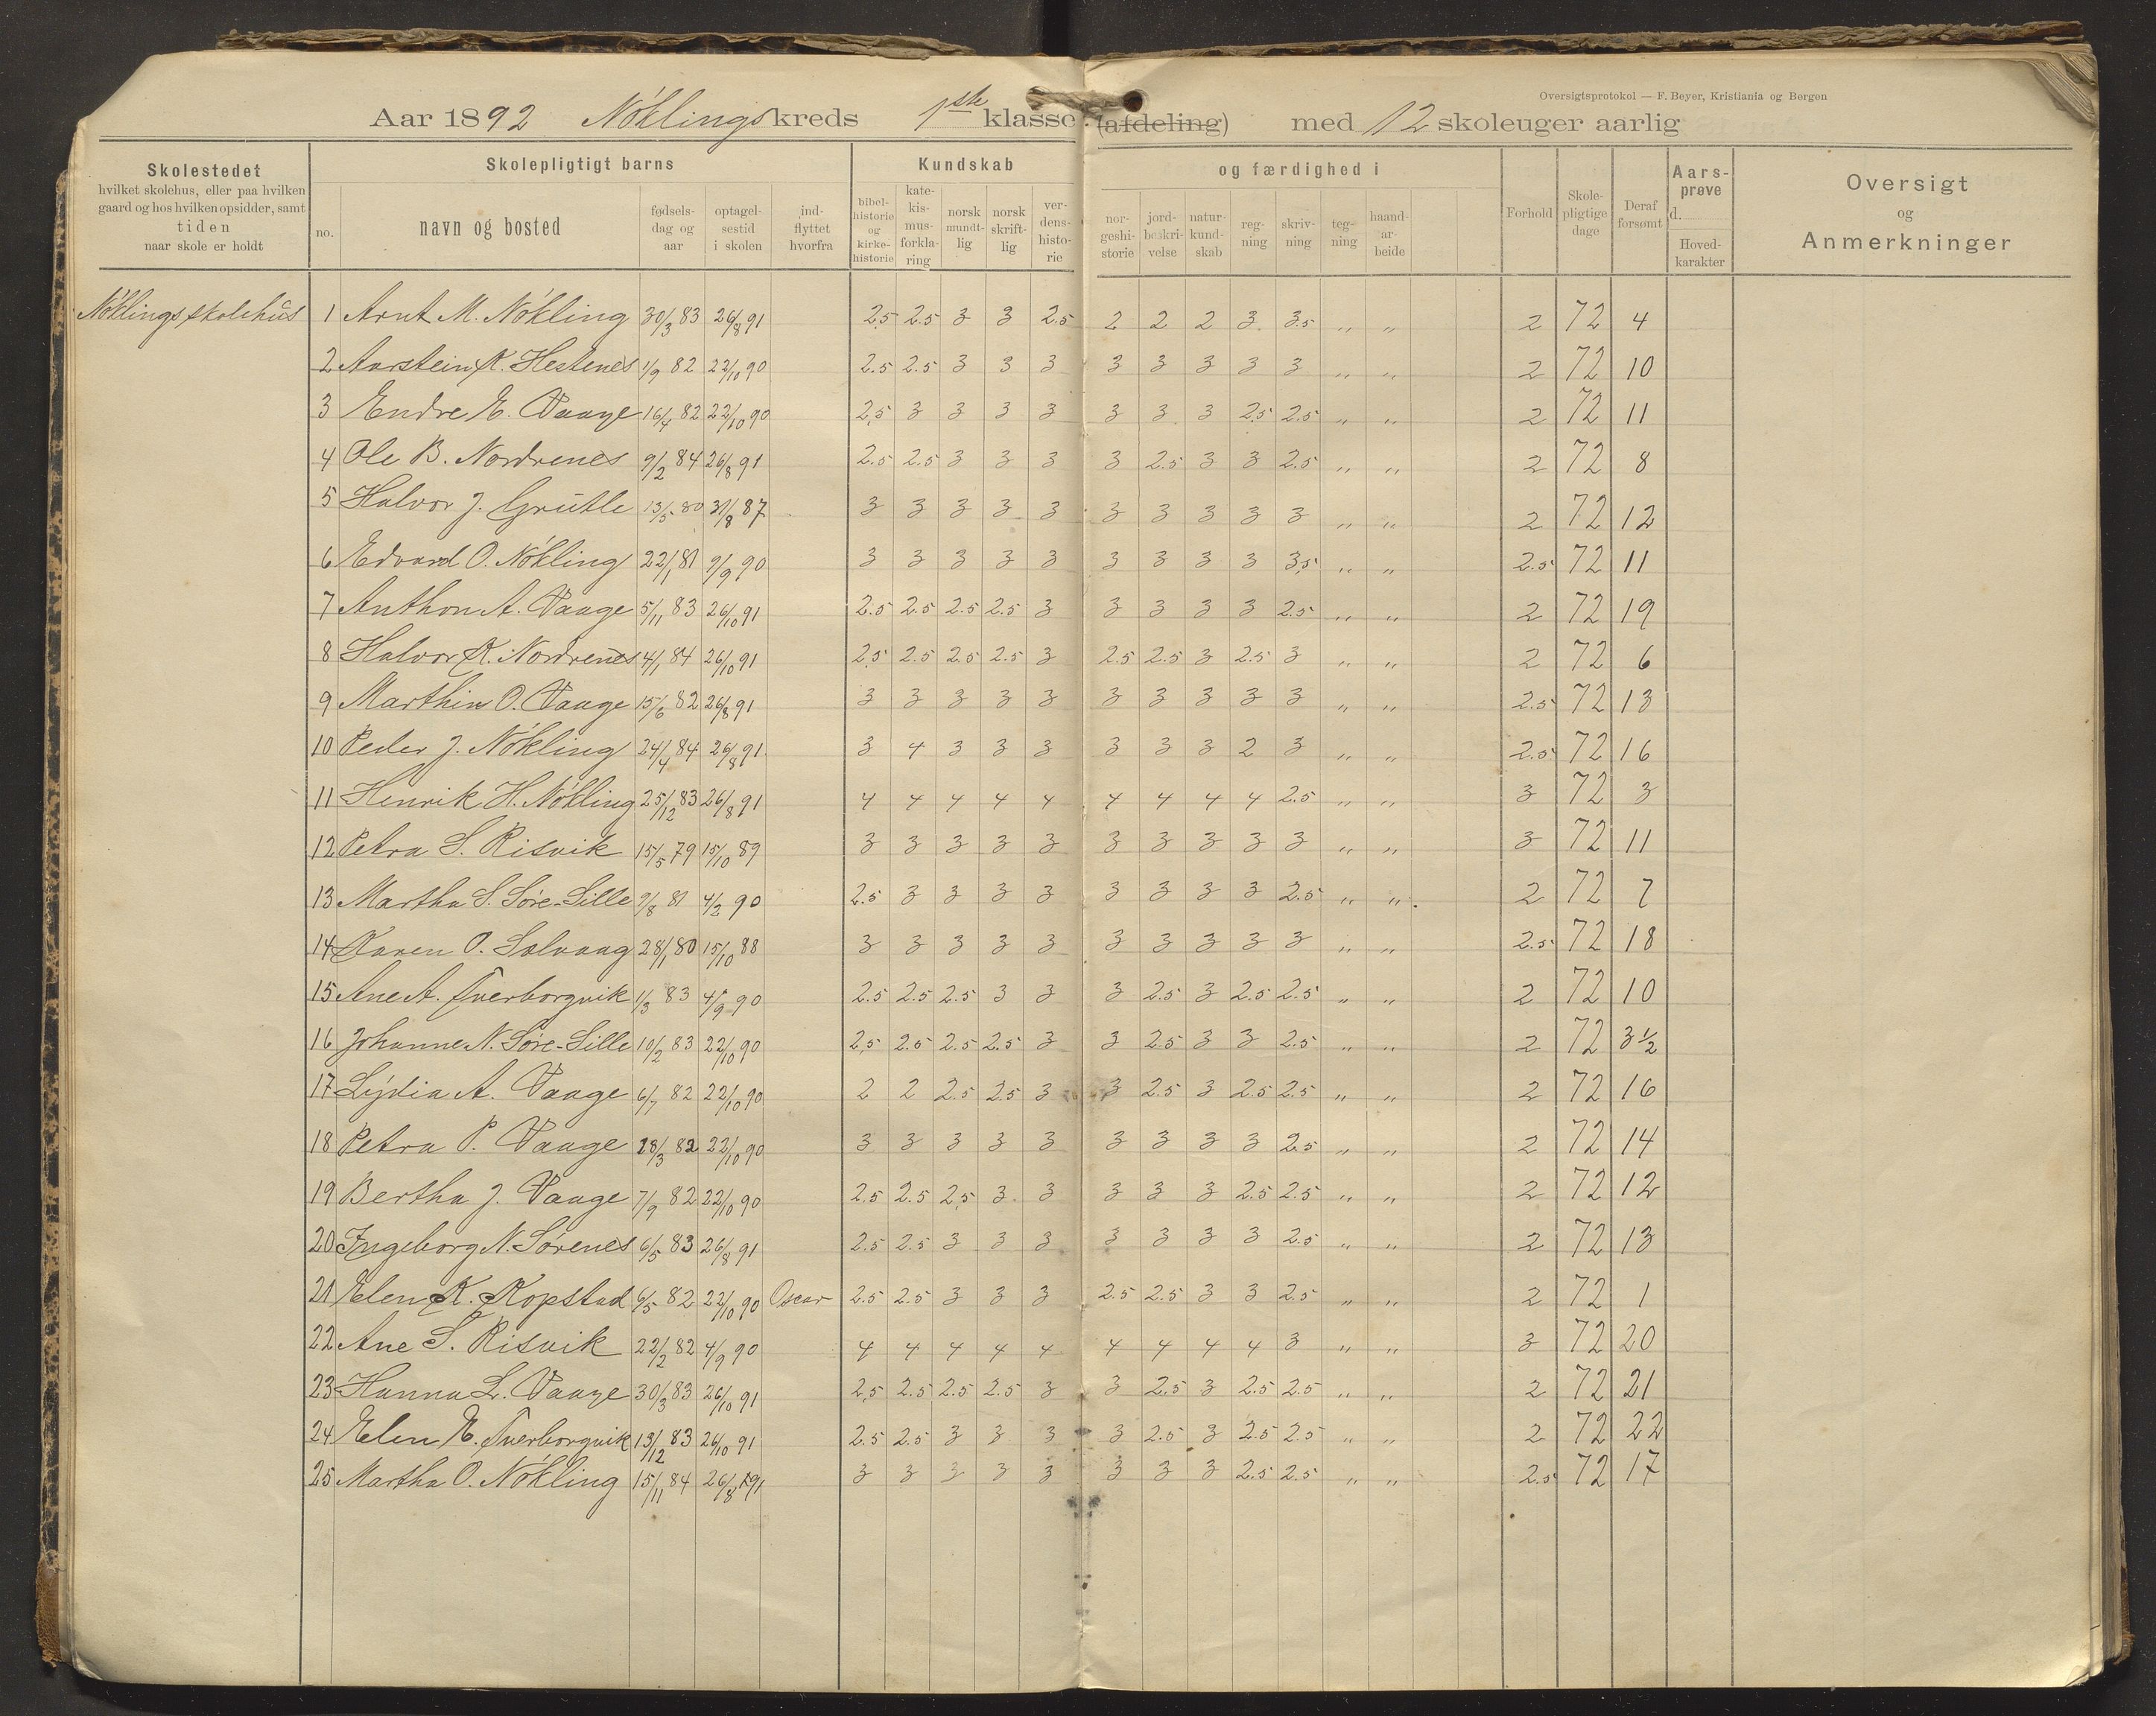 Oversigtsprotokol — F. Beyer, Kristiania og Bergen
Aar 1892 Nöklings kreds 1ste klasse (afdeling) med 12 skoleuger aarlig
Skolestedet
hvilket skolehus, eller paa hvilken
gaard og hos hvilken opsidder, samt
tiden
naar skole er holdt
Skolepligtigt barns
no.
navn og bosted
fødsels-
dag og
aar
optagel-
sestid
i skolen
ind-
flyttet
hvorfra
Kundskab
bibel-
historie
og
kirke-
historie
kate-
kis-
mus-
forkla-
ring
norsk
mundt-
lig
norsk
skrift-
lig
ver-
dens-
histo-
rie
og færdighed i
nor-
geshi-
storie
jord-
beskri-
velse
natur-
kund-
skab
reg-
ning
skriv-
ning
teg-
ning
haand-
ar-
beide
Forhold
Skole-
pligtige
dage
Deraf
forsømt
Aars-
prøve
d.
Hoved-
karakter
Oversigt
og
Anmerkninger
Nöklings skolehus 1 Arnt M. Nökling 30/3 83 26/8 91 2.5 2.5 3 3 2.5 2 2 2 3 3.5 " " 2 72 4
2 Aarstein K. Hestenes 1/9 82 22/10 90 2.5 2.5 3 3 3 3 3 3 3 3 " " 2 72 10
3 Endre E. Vaage 16/4 82 22/10 90 2.5 3 3 3 3 3 3 3 2.5 2.5 " " 2 72 11
4 Ole B. Nordrenes 9/2 84 26/8 91 2.5 2.5 3 3 3 3 2.5 3 3 2.5 " " 2 72 8
5 Halvor J. Grütle 13/5 80 31/8 87 3 3 3 3 3 3 3 3 3 3 " " 2 72 12
6 Edvard O. Nökling 22/1 81 9/9 90 3 3 3 3 3 3 3 3 3 3.5 " " 2.5 72 11
7 Anthon A. Vaage 5/11 83 26/10 91 2.5 2.5 2.5 2.5 3 3 3 3 3 2.5 " " 2 72 19
8 Halvor K. Nordrenes 4/1 84 26/10 91 2.5 2.5 2.5 2.5 3 2.5 2.5 3 2.5 3 " " 2 72 6
9 Marthin O. Vaage 15/6 82 26/8 91 3 3 3 3 3 3 3 3 3 3 " " 2.5 72 13
10 Peder J. Nökling 24/4 84 26/8 91 3 4 3 3 3 3 3 3 2 3 " " 2.5 72 16
11 Henrik H. Nökling 25/12 83 26/8 91 4 4 4 4 4 4 4 4 4 2.5 " " 3 72 3
12 Petra S. Risvik 15/5 79 15/10 89 3 3 3 3 3 3 3 3 3 3 " " 3 72 11
13 Martha S. Söre-Sille 9/8 81 4/2 90 2.5 3 3 3 3 3 3 3 3 2.5 " " 2 72 7
14 Karen O. Solvaag 28/1 80 15/10 88 3 3 3 3 3 3 3 3 3 3 " " 2.5 72 18
15 Ane A. Tverborgvik 1/3 83 4/9 90 2.5 2.5 2.5 3 3 3 2.5 3 2.5 2.5 " " 2 72 10
16 Johanne N. Söre-Sille 10/2 83 22/10 90 2.5 2.5 2.5 2.5 3 3 2.5 3 3 2.5 " " 2 72 3 1/2
17 Lydia A. Vaage 6/7 82 22/10 90 2 2 2.5 2.5 3 3 2.5 3 2.5 2.5 " " 2 72 16
18 Petra P. Vaage 28/3 82 22/10 90 3 3 3 3 3 3 3 3 3 2.5 " " 2 72 14
19 Bertha J. Vaage 7/9 82 22/10 90 2.5 2.5 2.5 3 3 3 3 3 2.5 2.5 " " 2 72 12
20 Ingeborg N. Sörenes 6/5 83 26/8 91 2.5 2.5 3 3 3 3 3 3 3 2.5 " " 2 72 13
21 Elen K. Kopstad 6/5 82 22/10 90 Oscar 2.5 2.5 3 3 3 2.5 2.5 3 3 2.5 " " 2 72 1
22 Ane S. Risvik 22/2 82 4/9 90 4 4 4 4 4 4 4 4 4 3 " " 3 72 20
23 Hanna L. Vaage 30/3 83 26/10 91 2.5 2.5 2.5 2.5 3 3 2.5 3 2.5 2.5 " " 2 72 21
24 Elen E. Tverborgvik 13/12 83 26/10 91 2.5 2.5 3 3 3 3 2.5 3 2.5 2.5 " " 2 72 22
25 Martha O. Nökling 15/11 84 26/8 91 3 3 3 3 3 3 3 3 2.5 2.5 " " 2.5 72 17